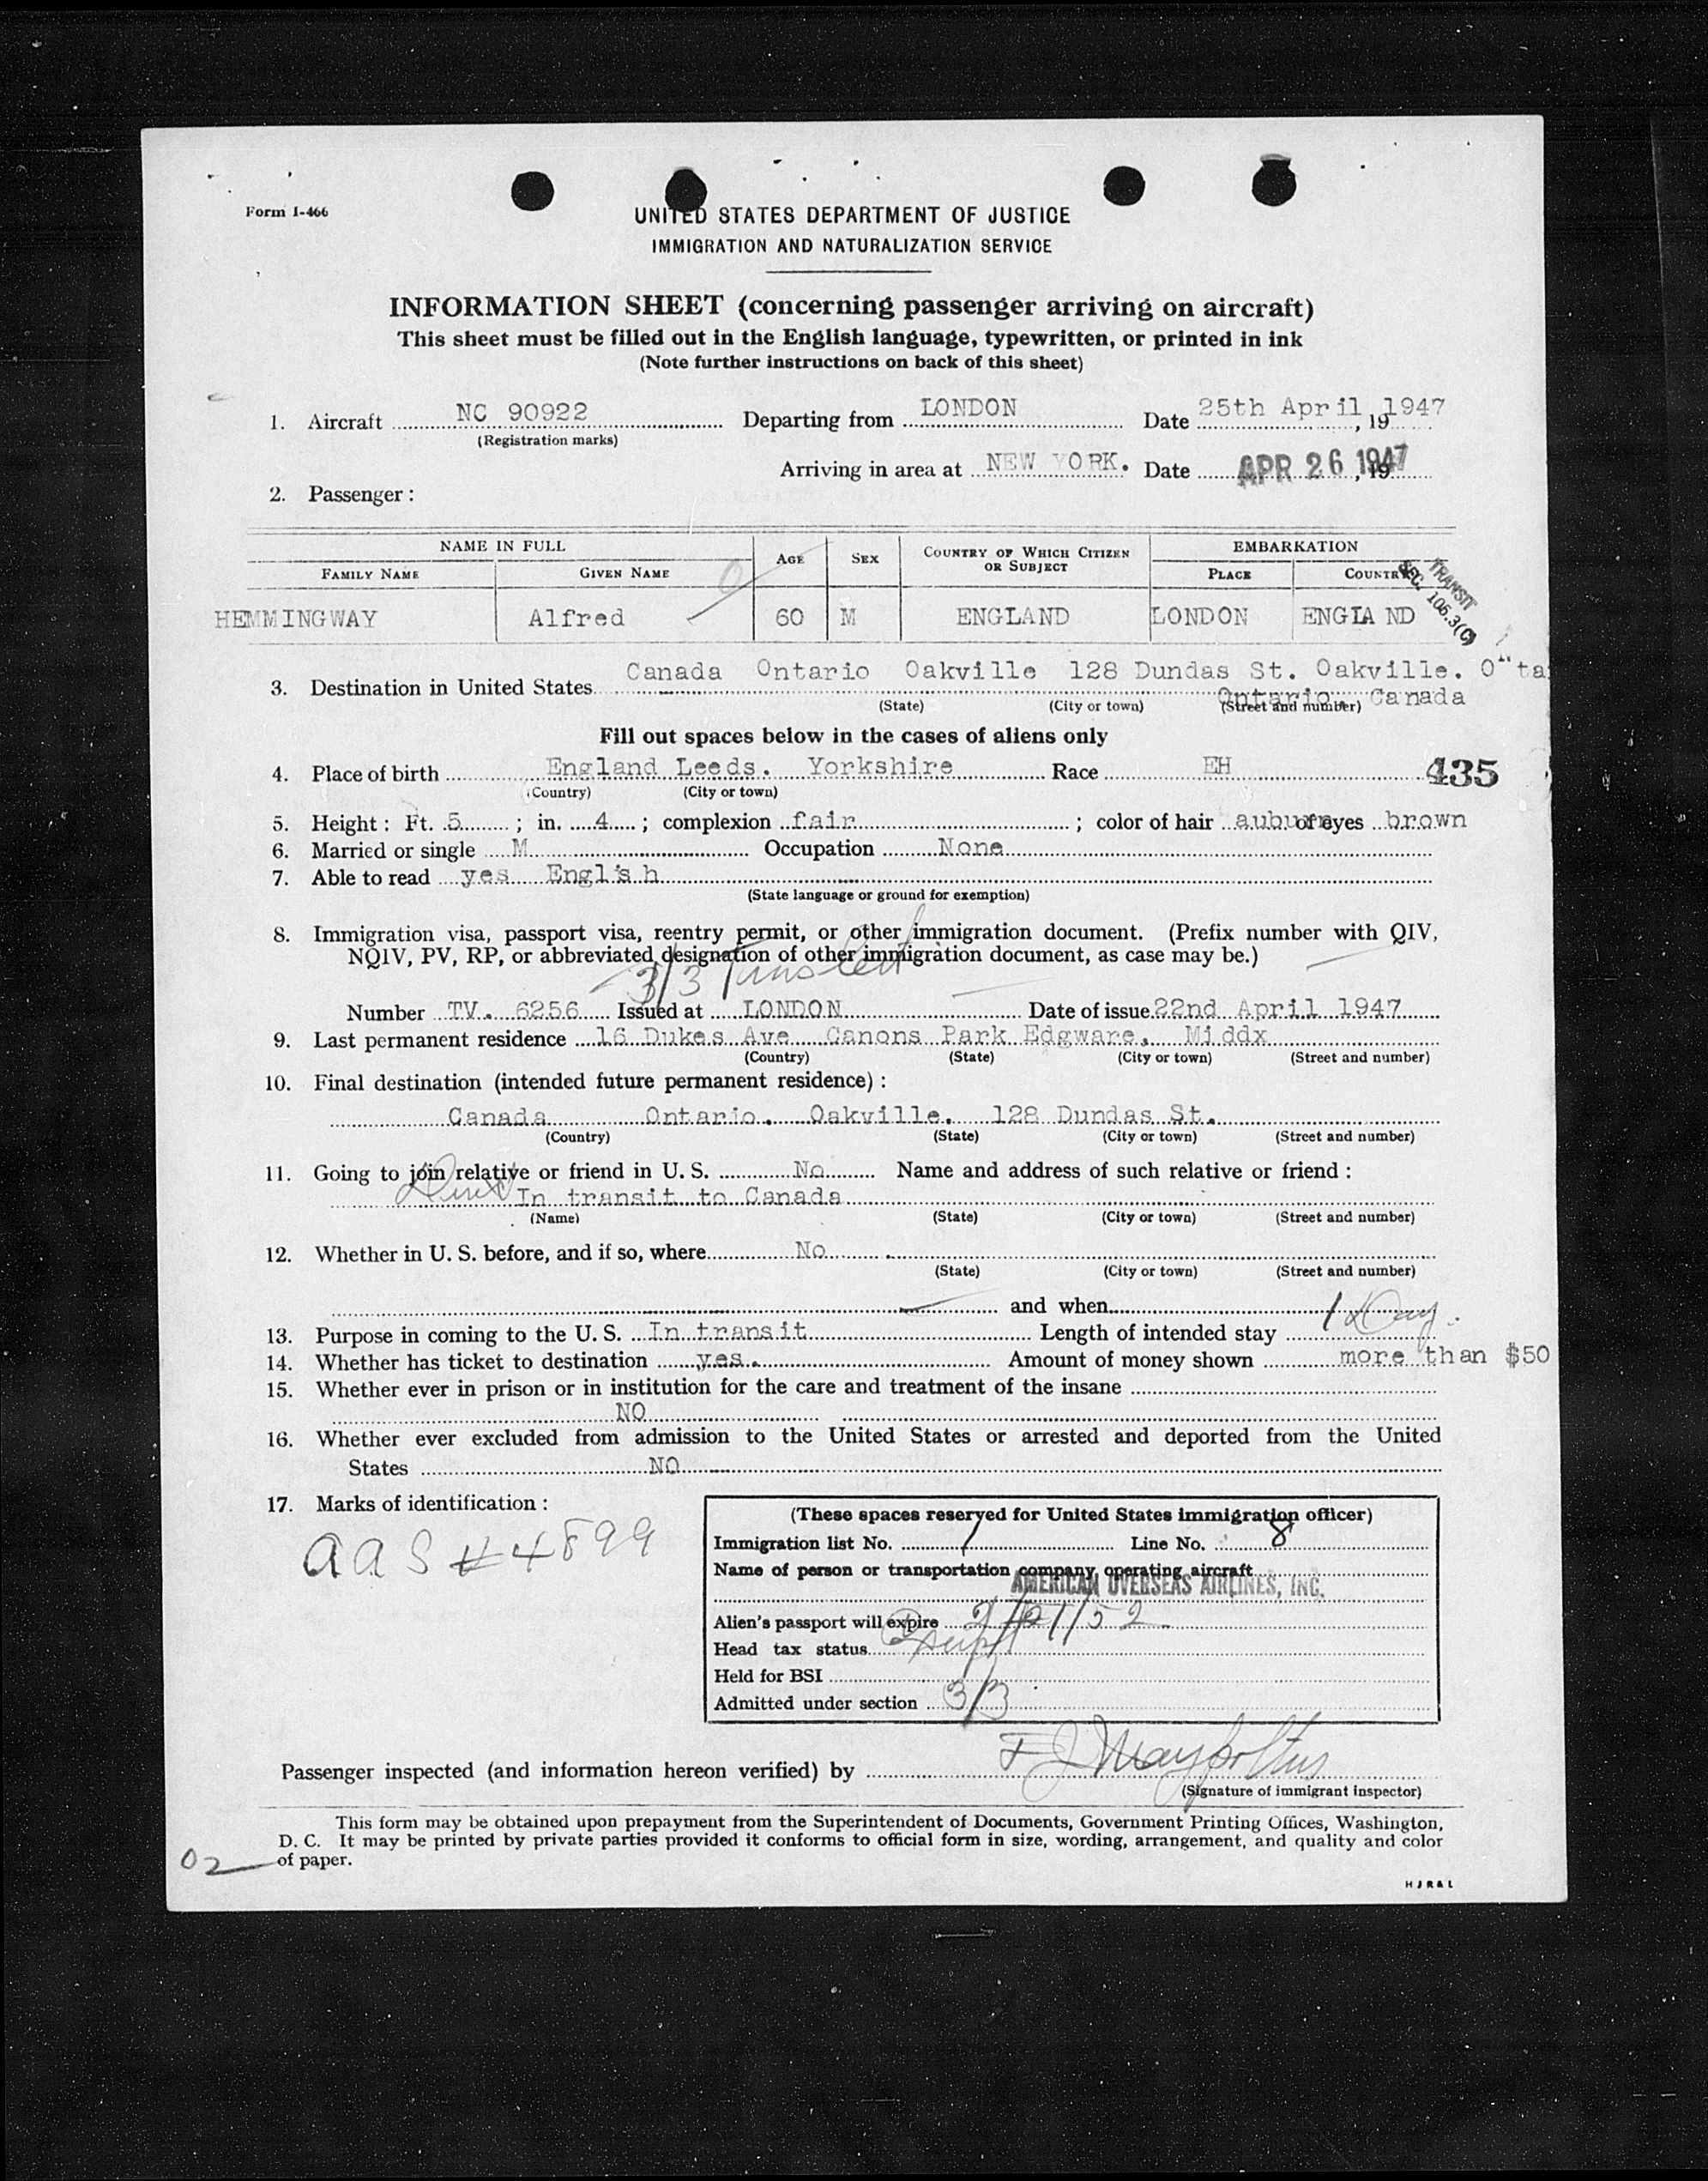 Form I-466
UNITED STATES DEPARTMENT OF JUSTICE
IMMIGRATION AND NATURALIZATION SERVICE
INFORMATION SHEET (concerning passenger arriving on aircraft)
This sheet must be filled out in the English language, typewritten, or printed in ink
(Note further instructions on back of this sheet)
1. Aircraft NC 90922 Departing from LONDON Date 25th April, 19 1947
(Registration marks)
Arriving in area at NEW YORK. Date APR 26 1947, 19
2. Passenger:
NAME IN FULL AGE SEX COUNTRY OF WHICH CITIZEN OR SUBJECT EMBARKATION
FAMILY NAME GIVEN NAME PLACE COUNTRY
TRANSIT
SEC. 105.3(C)
HEMMINGWAY Alfred 60 M ENGLAND LONDON ENGLA ND
3. Destination in United States Canada Ontario Oakville 128 Dundas St. Oakville. Onta
Ontario. Canada
(State) (City or town) (Street and number)
Fill out spaces below in the cases of aliens only
4. Place of birth England Leeds. Yorkshire Race EH 435
(Country) (City or town)
5. Height: Ft. 5; in. 4; complexion fair; color of hair auburn of eyes brown
6. Married or single M Occupation None
7. Able to read yes English
(State language or ground for exemption)
8. Immigration visa, passport visa, reentry permit, or other immigration document. (Prefix number with QIV,
NQIV, PV, RP, or abbreviated designation of other immigration document, as case may be.)
3/3
Number TV. 6256 Issued at LONDON Date of issue 22nd April 1947
9. Last permanent residence 16 Dukes Ave Canons Park Edgware. Middx
(Country) (State) (City or town) (Street and number)
10. Final destination (intended future permanent residence):
Canada Ontario. Oakville. 128 Dundas St.
(Country) (State) (City or town) (Street and number)
11. Going to join relative or friend in U. S. No Name and address of such relative or friend:
In transit to Canada
(Name) (State) (City or town) (Street and number)
12. Whether in U. S. before, and if so, where No
(State) (City or town) (Street and number)
and when
13. Purpose in coming to the U. S. In transit Length of intended stay 1 Day.
14. Whether has ticket to destination yes. Amount of money shown more than $50
15. Whether ever in prison or in institution for the care and treatment of the insane
NO
16. Whether ever excluded from admission to the United States or arrested and deported from the United
States NO
17. Marks of identification:
aas #4899
(These spaces reserved for United States immigration officer)
Immigration list No. 1 Line No. 8
Name of person or transportation company operating aircraft
AMERICAN OVERSEAS AIRLINES, INC.
Alien's passport will expire 2/21/52
Head tax status
Held for BSI
Admitted under section 3/3
Passenger inspected (and information hereon verified) by
(Signature of immigrant inspector)
This form may be obtained upon prepayment from the Superintendent of Documents, Government Printing Offices, Washington,
D. C. It may be printed by private parties provided it conforms to official form in size, wording, arrangement, and quality and color
of paper.
02
HJR&L